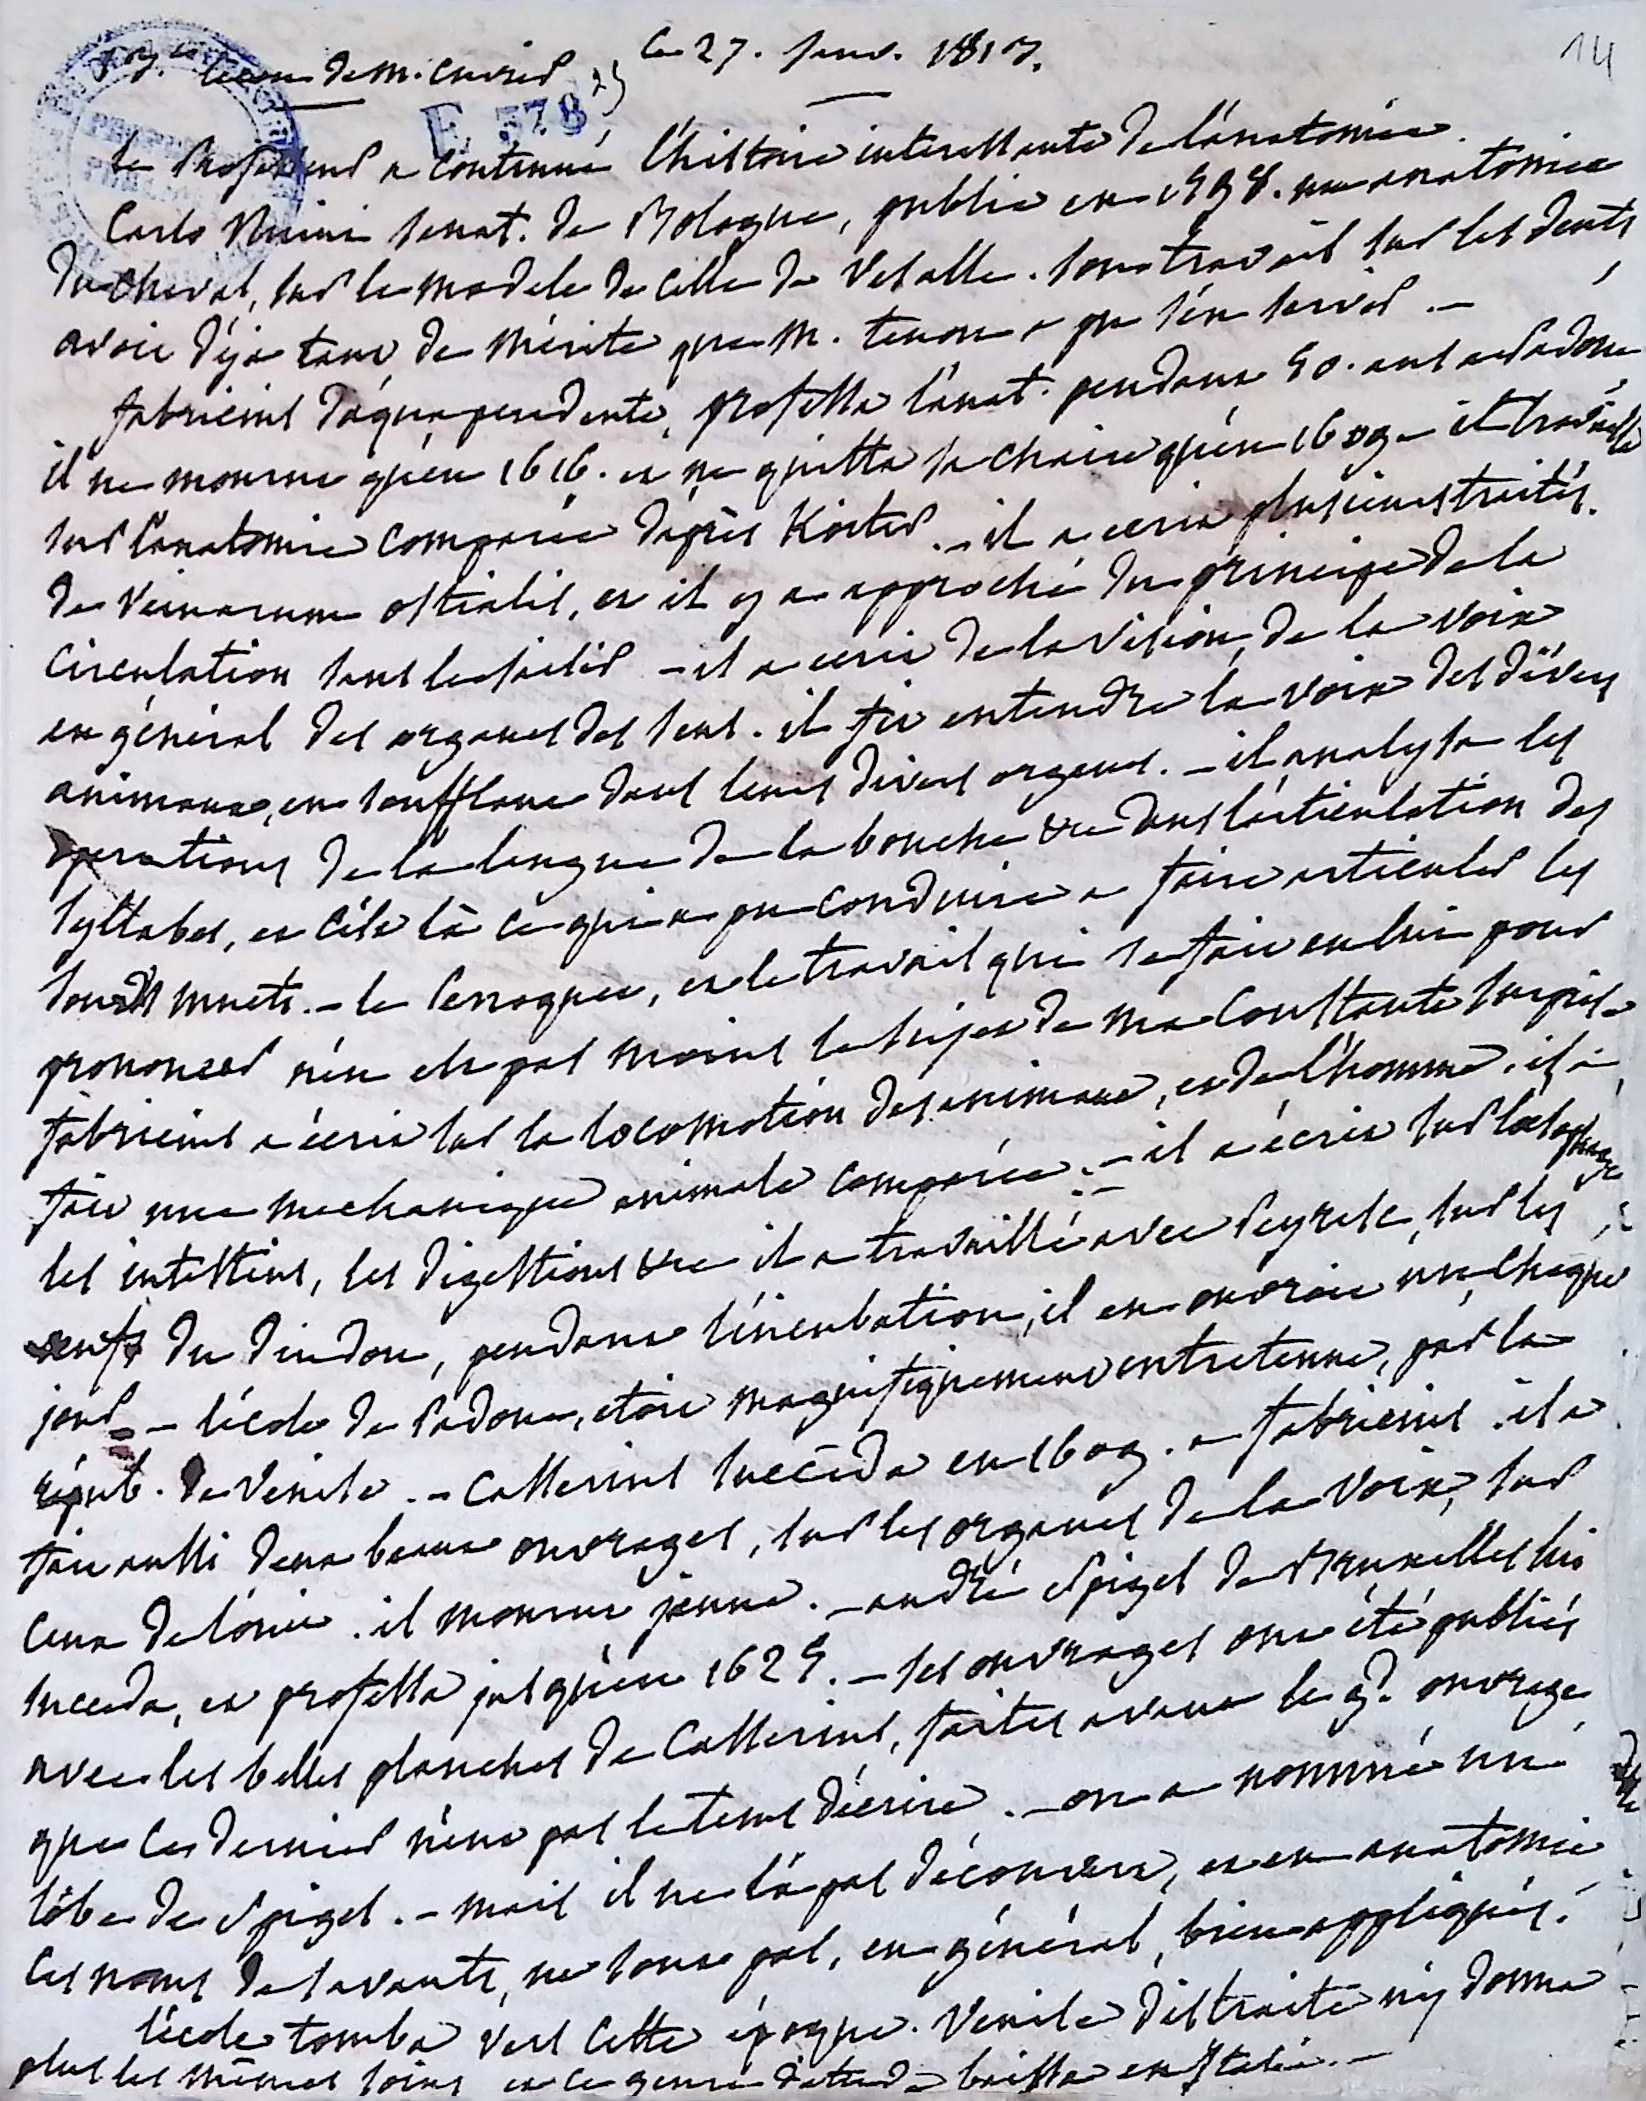 leçon de M. Cuvier le 27. janv. 1817. 14
E 378
le Professeur a continué l'histoire interessante de l'anatomie.
Carlo Ruini senat. de Bologne, publia en 1598. une anatomie
du cheval, sur le modele de celle de Vesalle. son travail sur les dents
avoit déja tant de mérite que M. tenon a pu s'en servir. -
fabricius d'aquapendente, professa l'anat. pendant 50. ans a Padoue
il ne mourut qu'en 1616. et ne quitta sa chaire qu'en 1609 - il travailla
sur l'anatomie comparée d'après Koiter. - il a ecrit plusieurs traités.
de venarum ostiolis, et il y a approché du principe de la
circulation sans le saisir - il a ecrit de la vision, de la voix
en général des organes des sens. il fit entendre la voix des divers
animaux, en soufflant dans leurs divers organes. - il analysa les
operations de la langue de la bouche &c dans l'articulation des
syllabes, et c'est là ce qui a pu conduire a faire articuler les
sourds muets. - le Perroquet, et le travail qui se fait en lui pour
prononcer n'en est pas moins le sujet de ma constante surprise
fabricius a écrit sur la locomotion des animaux, et de l'homme. il a
fait une mechanique animale comparée. - il a écrit sur l'oesophage
les intestins, les digestions &c il a travaillé avec Peyresc, sur les
oeufs du dindon, pendant l'incubation, il en ouvroit un, chaque
jour - l'école de Padoue, etoit magnifiquement entretenue, par la
répub. de Venise. - Casserius succéda en 1609. a fabricius. il a
fait aussi deux beaux ouvrages, sur les organes de la voix, sur
ceux de l'ouie. il mourut jeune. - andré Spigel de Bruxelles lui
succeda, et professa jusqu'en 1625. - ses ouvrages ont été publiés
avec les belles planches de Casserius, faites avant le gd. ouvrage
que ce dernier n'eut pas le tems d'écrire. - on a nommé un
lôbe de Spigel. - mais il ne l'a pas découvert, et en anatomie
les noms de savants, ne sont pas, en général, bien appliqués.
l'école tomba vers cette époque. Venise distraite n'y donna
plus les mêmes soins et ce genre d'etude baissa en Italie. -